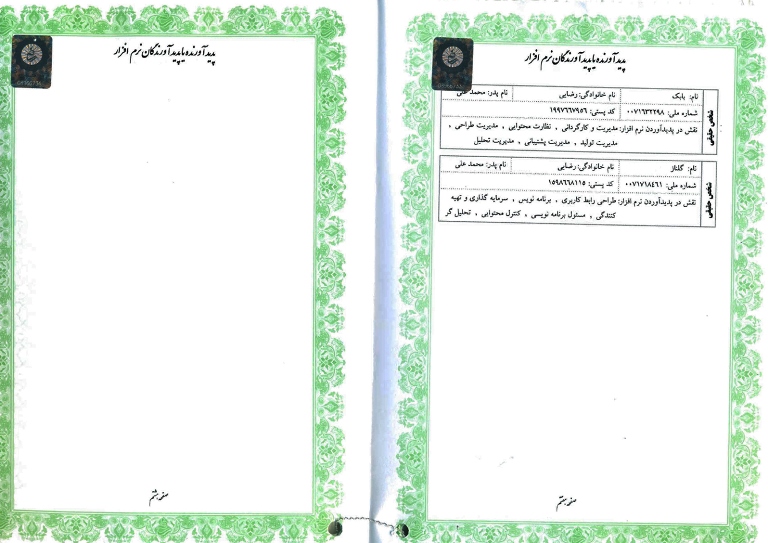 پدیدآورنده یا پدیدآورندگان نرم افزار
نام: بابک نام خانوادگی: رضایی نام پدر: محمد علی
شماره ملی: ۰۰۷۱۶۳۲۲۹۸ کد پستی: ۱۹۹۷۶۶۷۹۵۶
نقش در پدیدآوردن نرم افزار: مدیریت و کارگردانی , نظارت محتوایی , مدیریت طراحی ,
مدیریت تولید , مدیریت پشتیبانی , مدیریت تحلیل
شخص حقیقی
نام: گلناز نام خانوادگی: رضایی نام پدر: محمد علی
شماره ملی: ۰۰۷۱۷۱۸٤٦۱ کد پستی: ۱۵۹۸۶۶۸۱۱۵
نقش در پدیدآوردن نرم افزار: طراحی رابط کاربری , برنامه نویس , سرمایه گذاری و تهیه
کنندگی , مسئول برنامه نویسی , کنترل محتوایی , تحلیل گر
شخص حقیقی
صفحه هفتم
پدیدآورنده یا پدیدآورندگان نرم افزار
صفحه هشتم